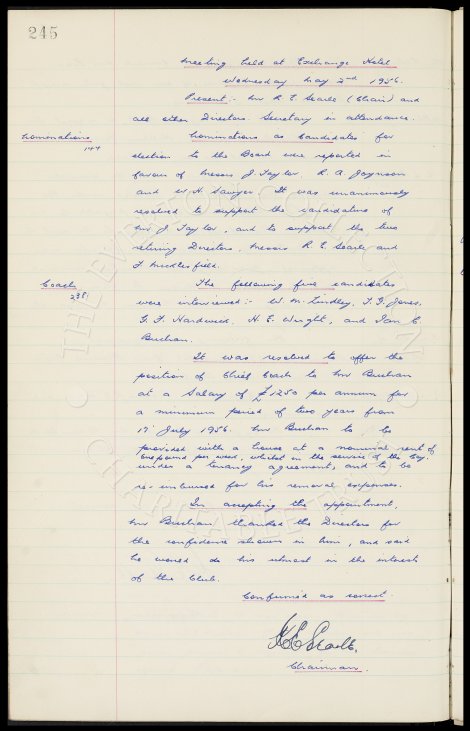 245
Meeting held at Exchange Hotel
Wednesday May 2nd 1956.
Present:- Mr R. E. Searle (Chair) and
all other Directors. Secretary in attendance.
Nominations
144
Nominations as Candidates for
election to the Board were reported in
favour of Messrs J. Taylor, R. A. Joynson
and W. H. Sawyer. It was unanimously
resolved to support the candidature of
Mr J. Taylor, and to support the two
retiring Directors, Messrs R. E. Searle and
F. Micklesfield.
Coach
238
The following five candidates
were interviewed:- W. M. Lindley, T. G. Jones,
G. F. Hardwick, H. E. Wright, and Ian C.
Buchan.
It was resolved to offer the
position of Chief Coach to Mr Buchan
at a Salary of £1250 per annum for
a minimum period of two years from
17 July 1956. Mr Buchan to be
provided with a house at a nominal rent of
one pound per week, whilst in the service of the Coy.
under a tenancy agreement, and to be
re-imbursed for his removal expenses.
In accepting the appointment,
Mr Buchan thanked the Directors for
the confidence shown in him, and said
he would do his utmost in the interests
of the Club.
Confirmed as correct.
R E Searle.
Chairman.
THE EVERTON COLLECTION
CHARITABLE TRUST